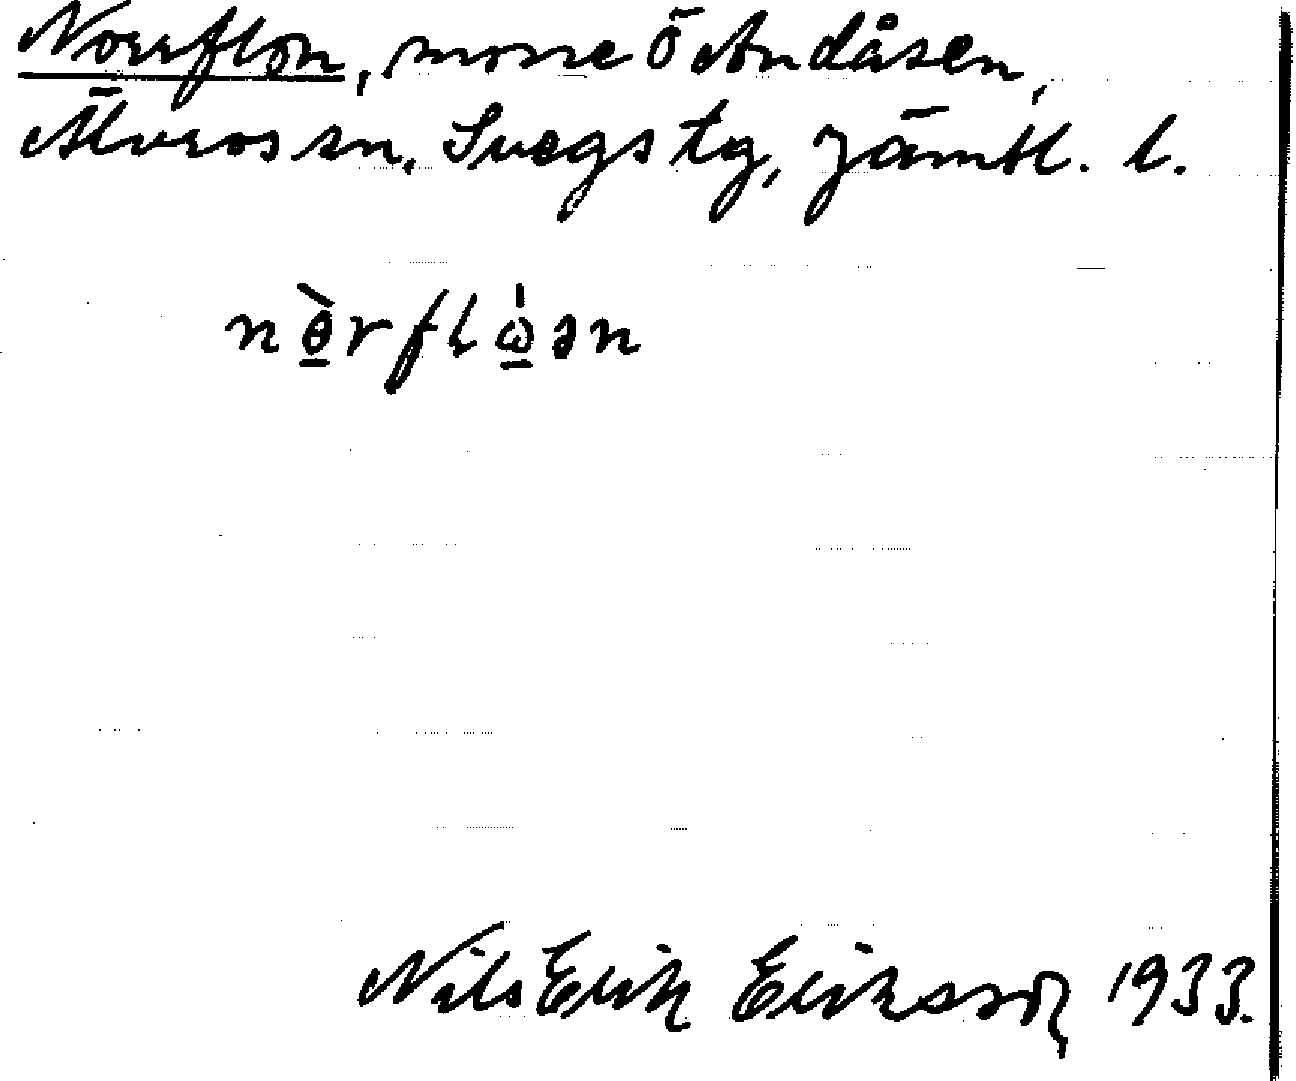 Norrflon, mosse ö Andåsen,
Älvros sn, Svegs tg, Jämtl. l.
nɵ̱̀rflώ̱ən
Nils Erik Eriksson 1933.